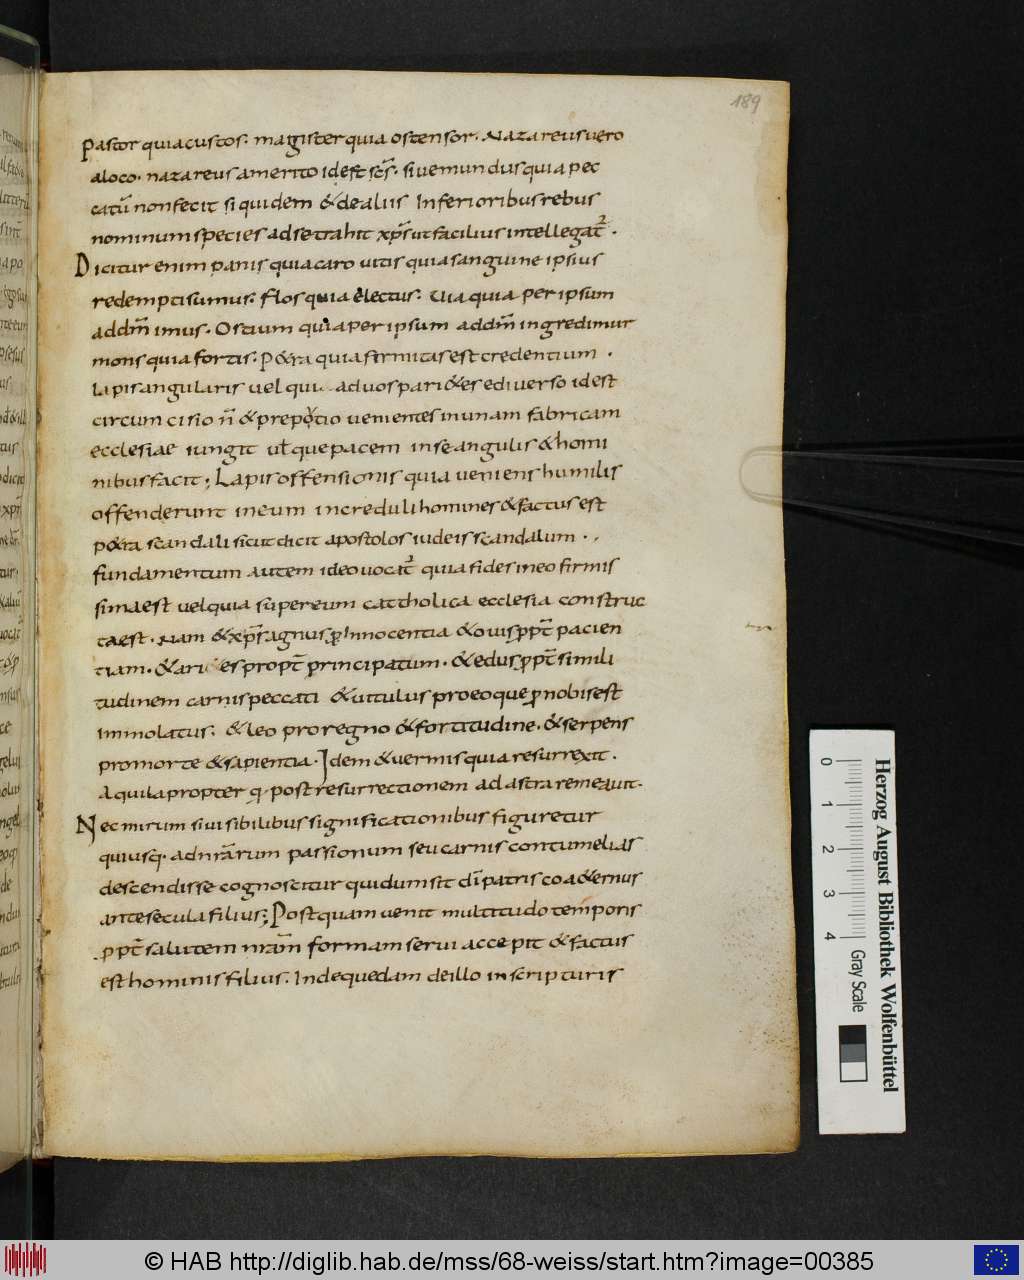 189
Pastor quia custos. magister quia ostensor. Nazareus vero
a loco. nazareus a merito id est scs̄. sive mundus quia pec
catū non fecit siquidem & de aliis Inferioribus rebus
nominum species ad se trahit xp̄s ut facilius intellegat᷑.
Dicitur enim panis quia caro vitis quia sanguine ipsius
redempti sumus. flos quia electus. Via quia per ipsum
ad dn̄m imus. Ostium quia per ipsum ad dn̄m ingredimur
mons quia fortis. P&ra quia firmitas est credentium.
Lapis angularis vel quia duos pari&es e diverso id est
circum cisio n̄ & prepotio venientes in unam fabricam
ecclesiae iungit ul̄ que pacem in se angulis & homi
nibus facit; Lapis offensionis quia veniens humilis
offenderunt in eum increduli homines & factus est
p&ra scandali sicut dicit apostolos iudeis scandalum.
fundamentum autem ideo vocat᷑ quia fides in eo firmis
sima est vel quia super eum cattholica ecclesia construc
ta est. Nam & xp̄s agnus ꝓ Innocentia & ovis ꝓpt̄ pacien
tiam. & aries propt̄ principatum. & edus ꝓpt̄ simili
tudinem carnis peccati & vitulus pro eo que ꝓ nobis est
immolatus. & leo pro regno & fortitudine. & serpens
pro morte & sapientia. Idem & vermis quia resurrexit.
Aquila propter q. post resurrectionem ad astra remeavit.
Nec mirum si visibilibus significationibus figuretur
qui usq. ad nr̄arum passionum seu carnis contumelias
descendisse cognoscitur qui dum sit dī patris coa&ernus
ante secula filius; Postquam venit multitudo temporis
ꝓpt̄ salutem nr̄am formam servi accepit & factus
est hominis filius. Inde quedam de illo in scripturis
Herzog August Bibliothek Wolfenbüttel
0 1 2 3 4
Gray Scale
© HAB http://diglib.hab.de/mss/68-weiss/start.htm?image=00385